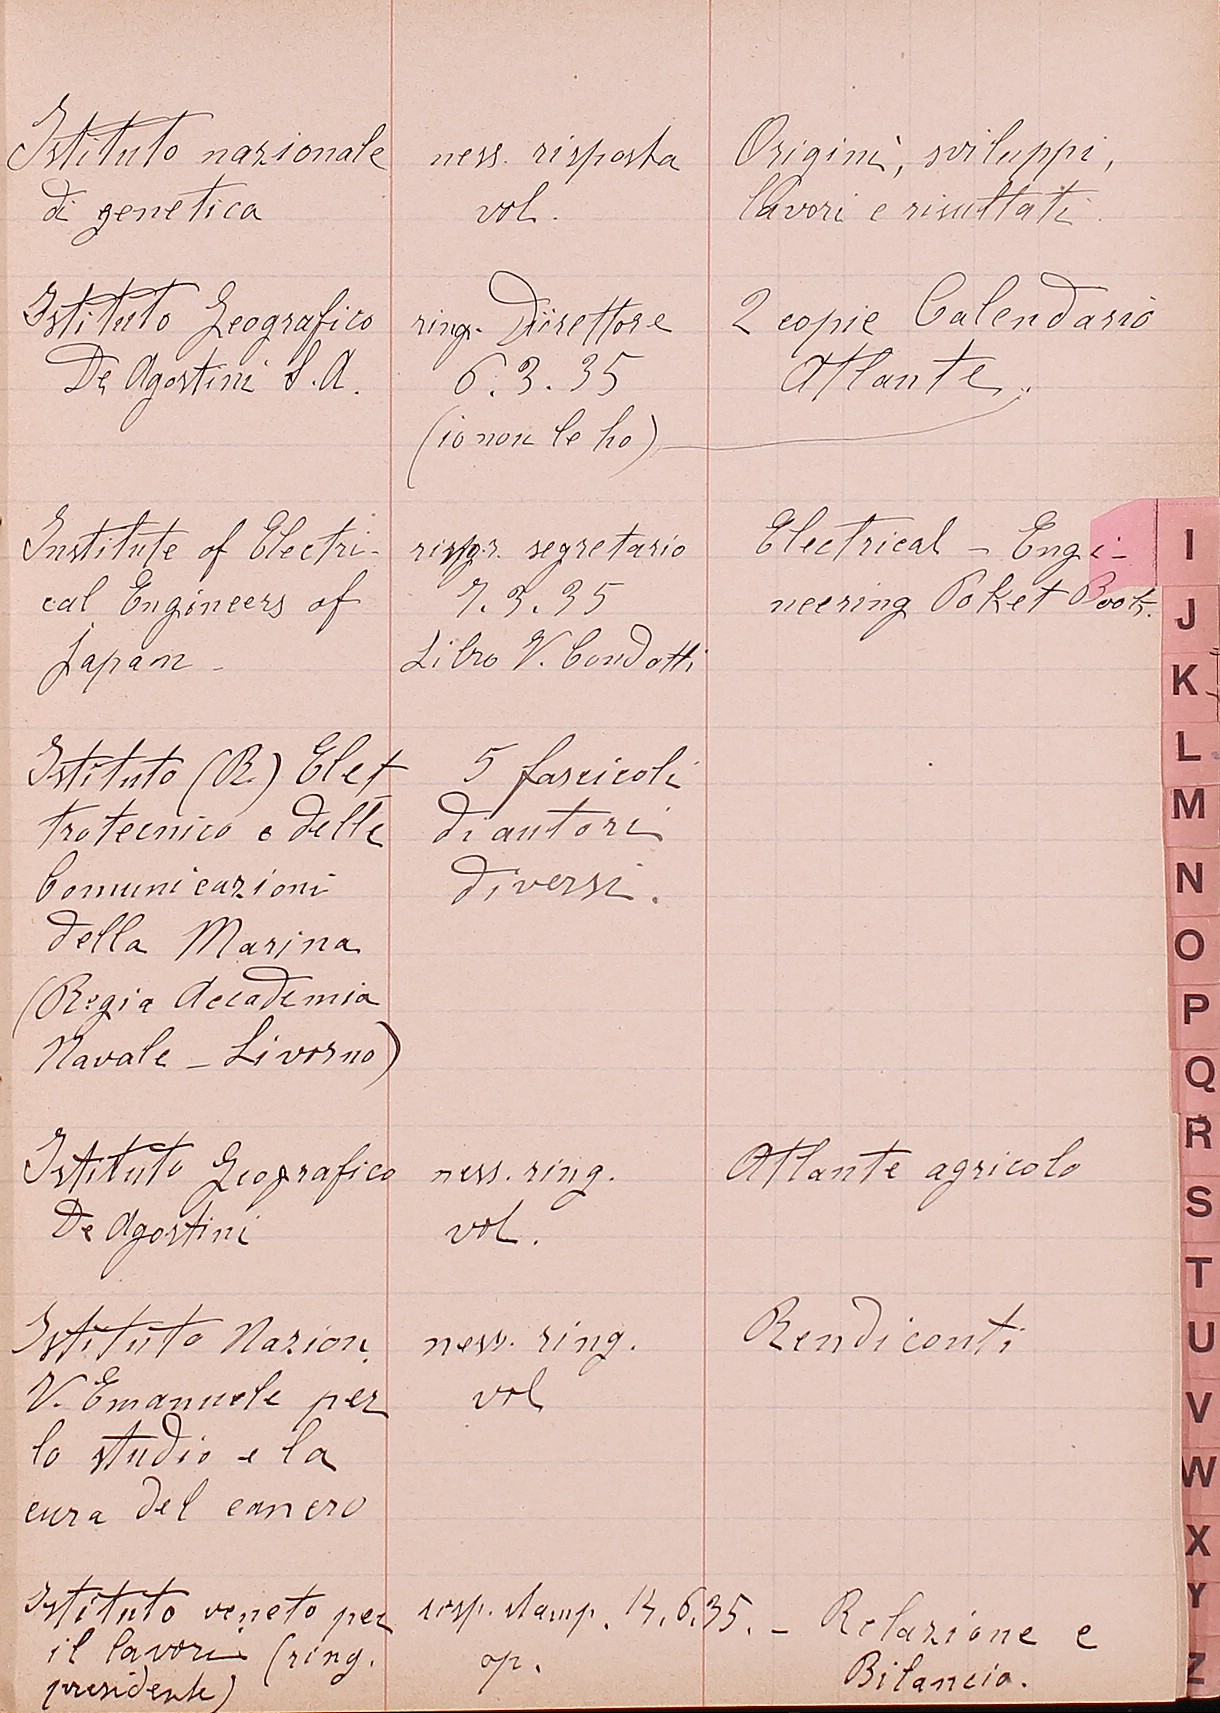 Istituto nazionale ness. risposta Origini, sviluppi,
di genetica vol. lavori e risultati.
Istituto Geografico ring. Direttore 2 copie Calendario
De Agostini S.A. 6.3.35 Atlante.
(io non le ho)
Institute of Electri- segretario Electrical - Engi-
cal Engineers of 7.3.35 neering Poket Book.
Japan - Libro V. Condotti
Istituto (R.) Elet 5 fascicoli
trotecnico e delle di autori
Comunicazioni diversi.
della Marina
(Regia Accademia
Navale - Livorno)
Istituto Geografico ness. ring. Atlante agricolo
De Agostini vol.
Istituto Nazion. ness. ring. Rendiconti
V. Emanuele per vol
lo studio e la
cura del cancro
Istituto veneto per risp. stamp. 14.6.35. - Relazione e
il lavoro (ring. op. Bilancio.
presidente)
I
J
K
L
M
N
O
P
Q
R
S
T
U
V
W
X
Y
Z